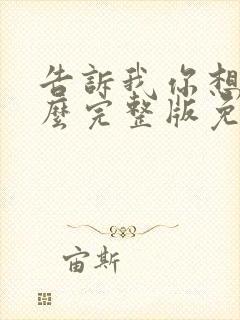 告訴我你想
麼完整版免
宙斯